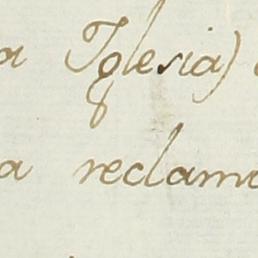 a Iglesia)
a reclama